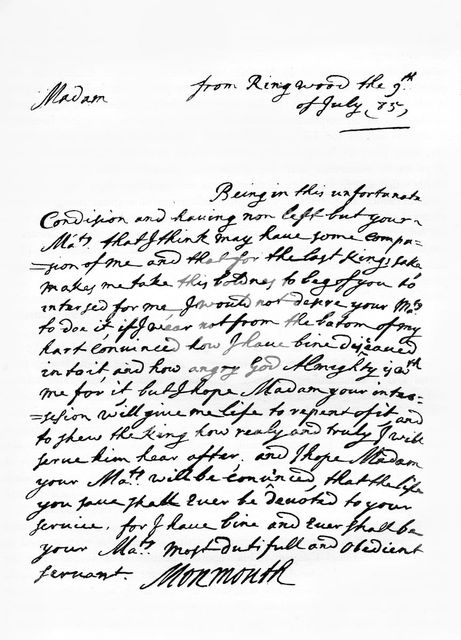 from Ringwood the 9th
Madam
of July (85)
Being in this unfortunate
Condision and having non left but your
Maty. that I think may have some compa=
=sion of me and that for the last Kings sake
makes me take this boldnes to beg of you to
intersed for me I would not desire your Maty
to doe it if I wear not from the botom of my
hart convinced how I have bine diseaved
in to it and how angry God Almighty is with
me for it but I hope Madam your inter=
=sesion will give me life to repent of it and
to shew the King how realy and truly I will
serve him haar after. and I hope Madam
your Maty. will be convinced, that the life
you save shall Ever be devoted to your
service, for I have bine and Ever shall be
your Maty. most dutifull and obedient
servant. Monmouth